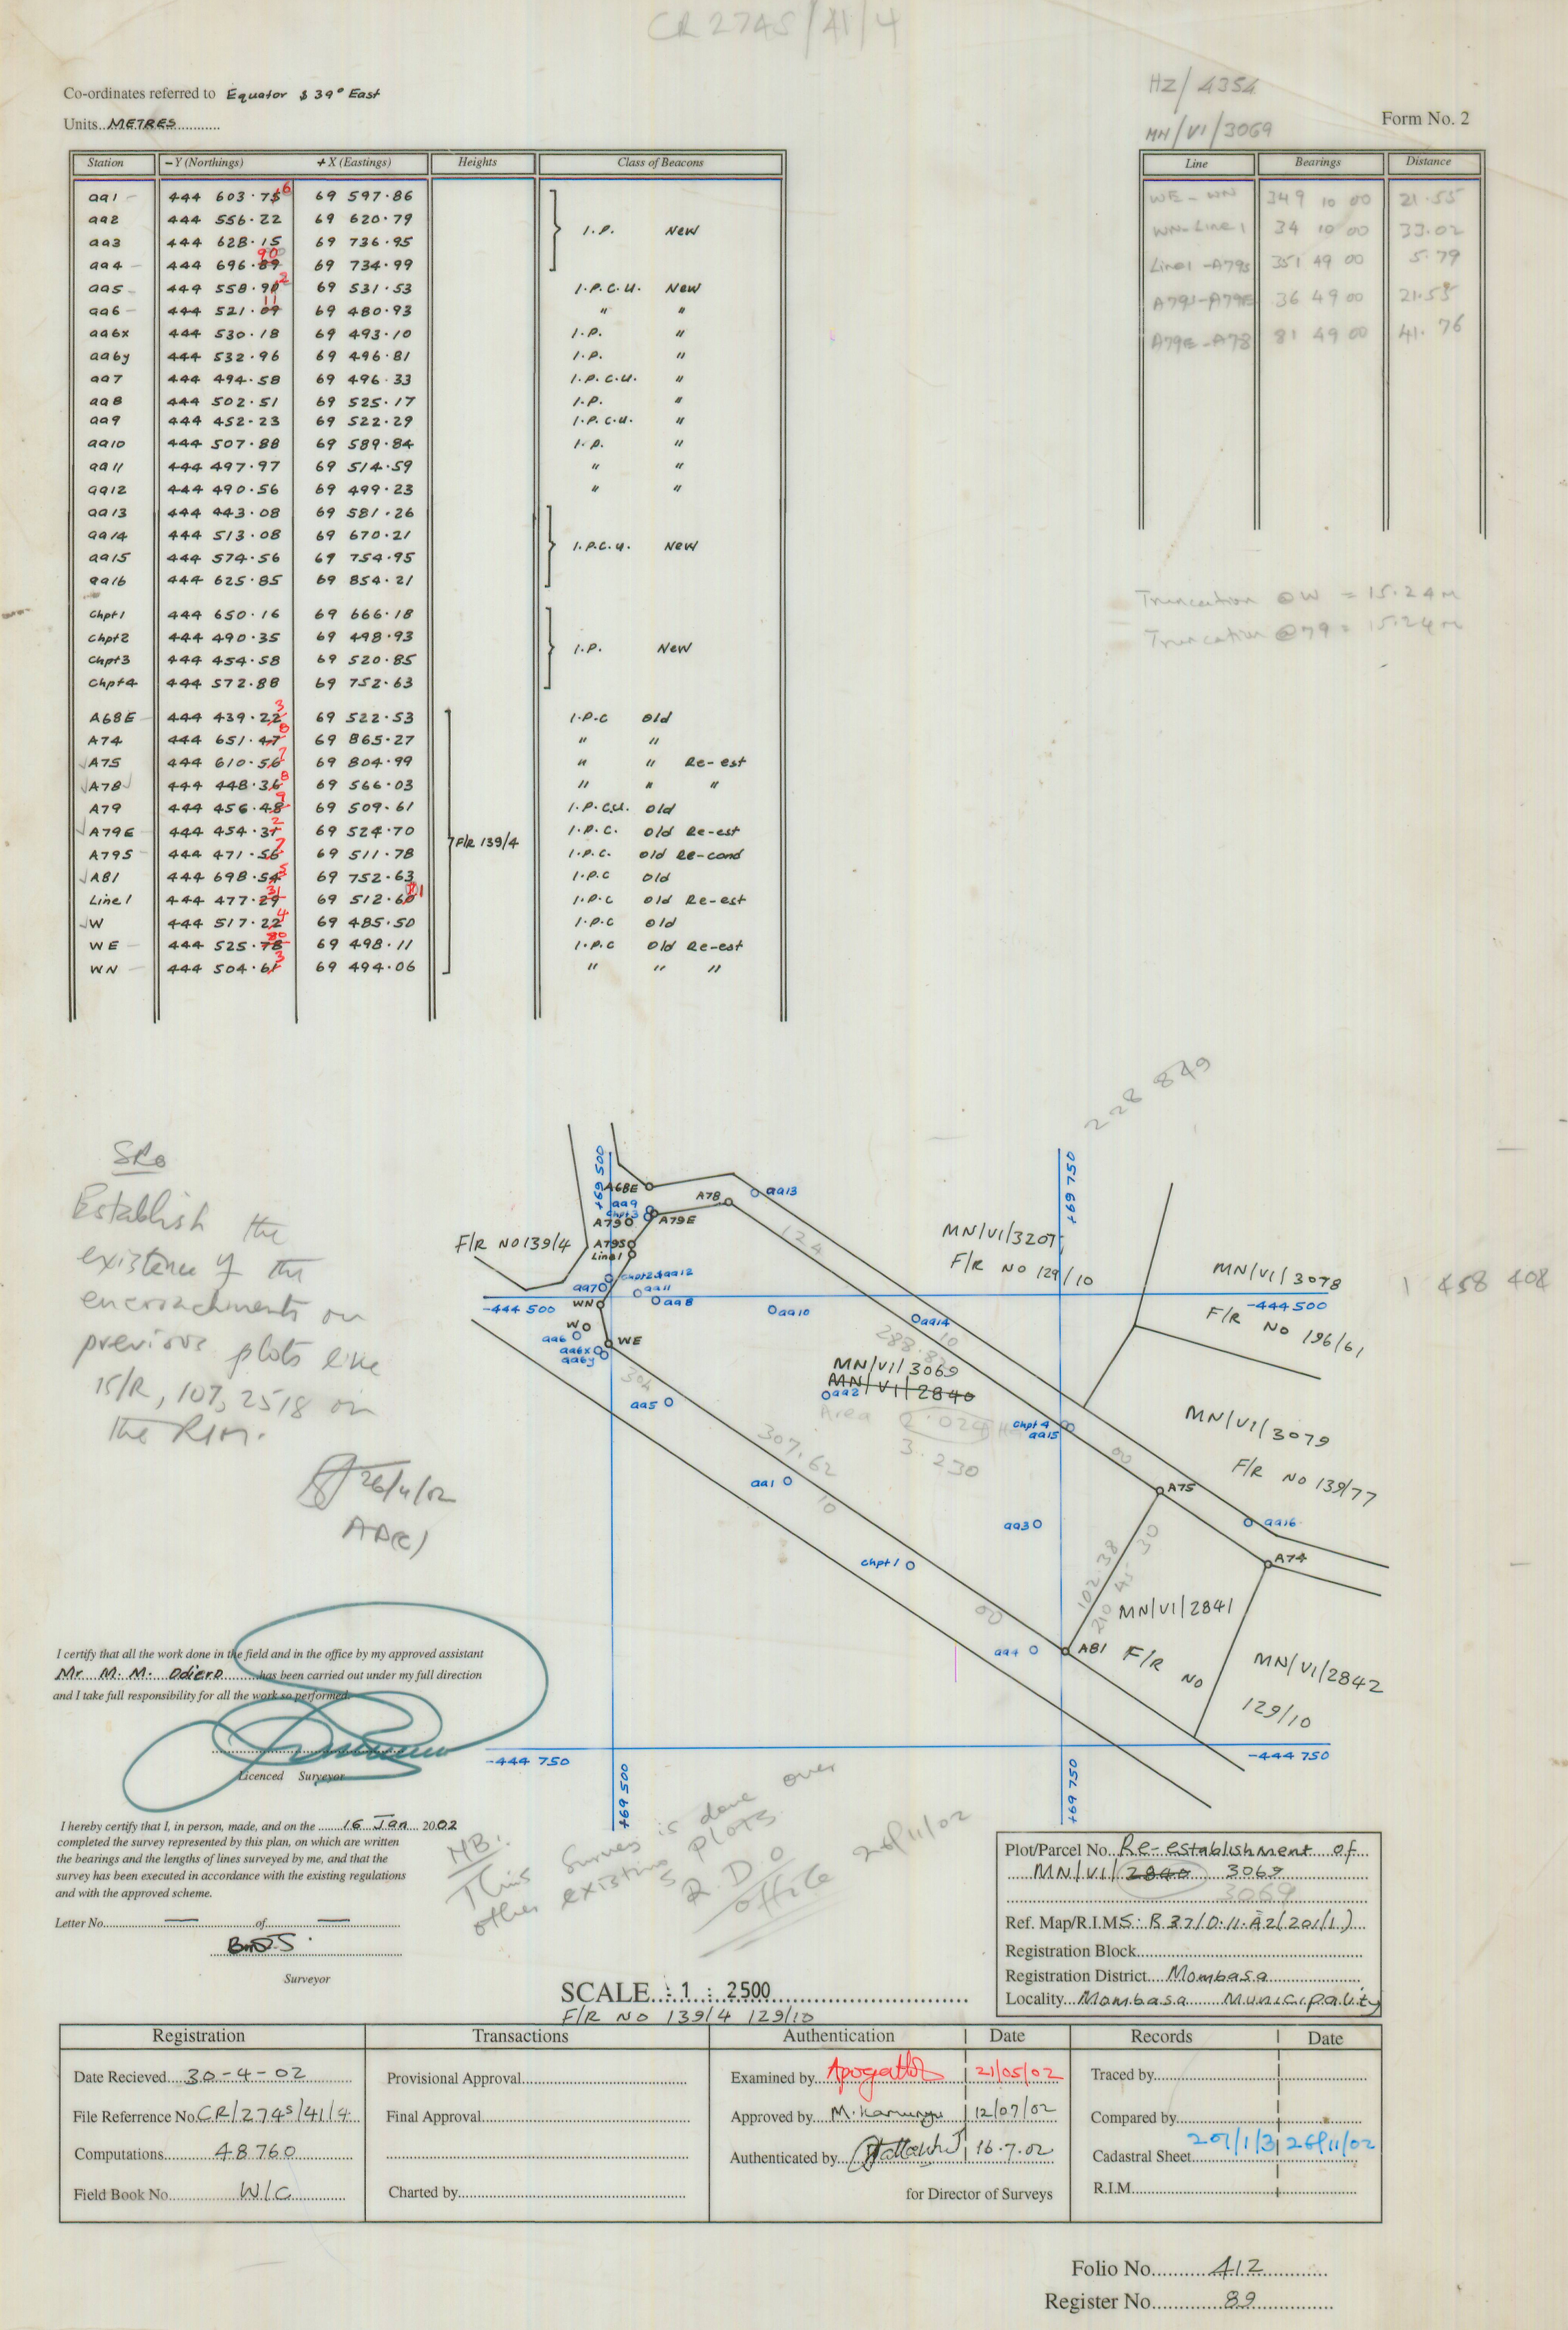 CR 2745/41/4
Co-ordinates referred to Equator $ 39° East
Units METRES
HZ/4354
MN/VI/3069
Form No. 2
Station -Y (Northings) +X (Eastings) Heights Class of Beacons
aa1 444 603.75 6 69 597.86
aa2 444 556.22 69 620.79 I.P. New
aa3 444 628.15 69 736.95
aa4 444 696.89 90 69 734.99
aa5 444 558.90 2 69 531.53 I.P.C.U. New
aa6 444 521.09 11 69 480.93 " "
aa6x 444 530.18 69 493.10 I.P. "
aa6y 444 532.96 69 496.81 I.P. "
aa7 444 494.58 69 496.33 I.P.C.U. "
aa8 444 502.51 69 525.17 I.P. "
aa9 444 452.23 69 522.29 I.P.C.U. "
aa10 444 507.88 69 589.84 I.P. "
aa11 444 497.97 69 514.59 " "
aa12 444 490.56 69 499.23 " "
aa13 444 443.08 69 581.26
aa14 444 513.08 69 670.21
aa15 444 574.56 69 754.95 I.P.C.U. New
aa16 444 625.85 69 854.21
Chpt1 444 650.16 69 666.18
Chpt2 444 490.35 69 498.93 I.P. New
Chpt3 444 454.58 69 520.85
Chpt4 444 572.88 69 752.63
A68E 444 439.22 3 69 522.53 I.P.C Old
A74 444 651.47 8 69 865.27 " "
A75 444 610.56 7 69 804.99 " " Re-est
A78 444 448.36 8 69 566.03 " " "
A79 444 456.48 9 69 509.61 I.P.C.U. Old
A79E 444 454.31 2 69 524.70 I.P.C. Old Re-est
A79S 444 471.56 7 69 511.78 F/R 139/4 I.P.C. Old Re-cond
A81 444 698.54 5 69 752.63 I.P.C Old
Line1 444 477.29 31 69 512.60 1 I.P.C Old Re-est
W 444 517.22 4 69 485.50 I.P.C Old
WE 444 525.78 80 69 498.11 I.P.C Old Re-est
WN 444 504.61 3 69 494.06 " " "
Line Bearings Distance
WE-WN 349 10 00 21.55
WN-Line1 34 10 00 33.02
Line1-A79S 351 49 00 5.79
A79S-A79E 36 49 00 21.55
A79E-A78 81 49 00 41.76
Truncation @W = 15.24m
Truncation @79 = 15.24m
228 849
SRo
Establish the
existence of the
encroachments on
previous plots like
15/R, 107, 2518 on
the RIM.
26/11/02
AD(C)
+69 500
+69 750
A68E
aa9
Chpt3
A79
A79E
A78
aa13
A79S
Line1
F/R NO 139/4
124
MN/VI/3207
F/R NO 129/10
MN/VI/3078
F/R NO 196/61
1 458 408
Chpt2 $ aa12
aa7
aa11
WN
aa8
aa10
aa14
-444 500
-444 500
W
aa6
WE
aa6x
aa6y
10
MN/VI/3069
MN/VI/2840
aa2
Area 2.024 Ha
3.230
304
aa5
Chpt4
aa15
00
MN/VI/3079
F/R NO 139/77
307.62
10
aa1
A75
aa16
aa3
A74
Chpt1
102.38
210 45 30
00
MN/VI/2841
F/R NO
129/10
aa4
A81
MN/VI/2842
-444 750
-444 750
+69 500
+69 750
I certify that all the work done in the field and in the office by my approved assistant
Mr M. M. Odiero has been carried out under my full direction
and I take full responsibility for all the work so performed.
Licenced Surveyor
I hereby certify that I, in person, made, and on the 16 Jan 2002
completed the survey represented by this plan, on which are written
the bearings and the lengths of lines surveyed by me, and that the
survey has been executed in accordance with the existing regulations
and with the approved scheme.
Letter No. — of —
Surveyor
NB:
This survey is done over
other existing plots
R.D.O
office 26/11/02
SCALE : 1 : 2500
F/R NO 139/4 129/10
Plot/Parcel No. Re-establishment of
MN/VI/2840 3069
3069
Ref. Map/R.I.M S. B 37/D.11.A2/201/1)
Registration Block
Registration District Mombasa
Locality Mombasa Municipality
Registration Transactions Authentication Date Records Date
Date Recieved 30-4-02 Provisional Approval Examined by 21/05/02 Traced by
File Referrence No. CR/2745/41/4 Final Approval Approved by M. Kamunyu 12/07/02 Compared by
Computations 48760 Authenticated by 16.7.02 Cadastral Sheet 201/1/3 26/11/02
Field Book No. W/C Charted by for Director of Surveys R.I.M.
Folio No. 412
Register No. 89